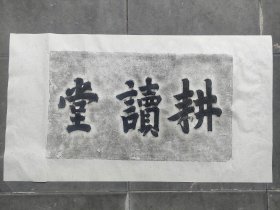 耕讀堂